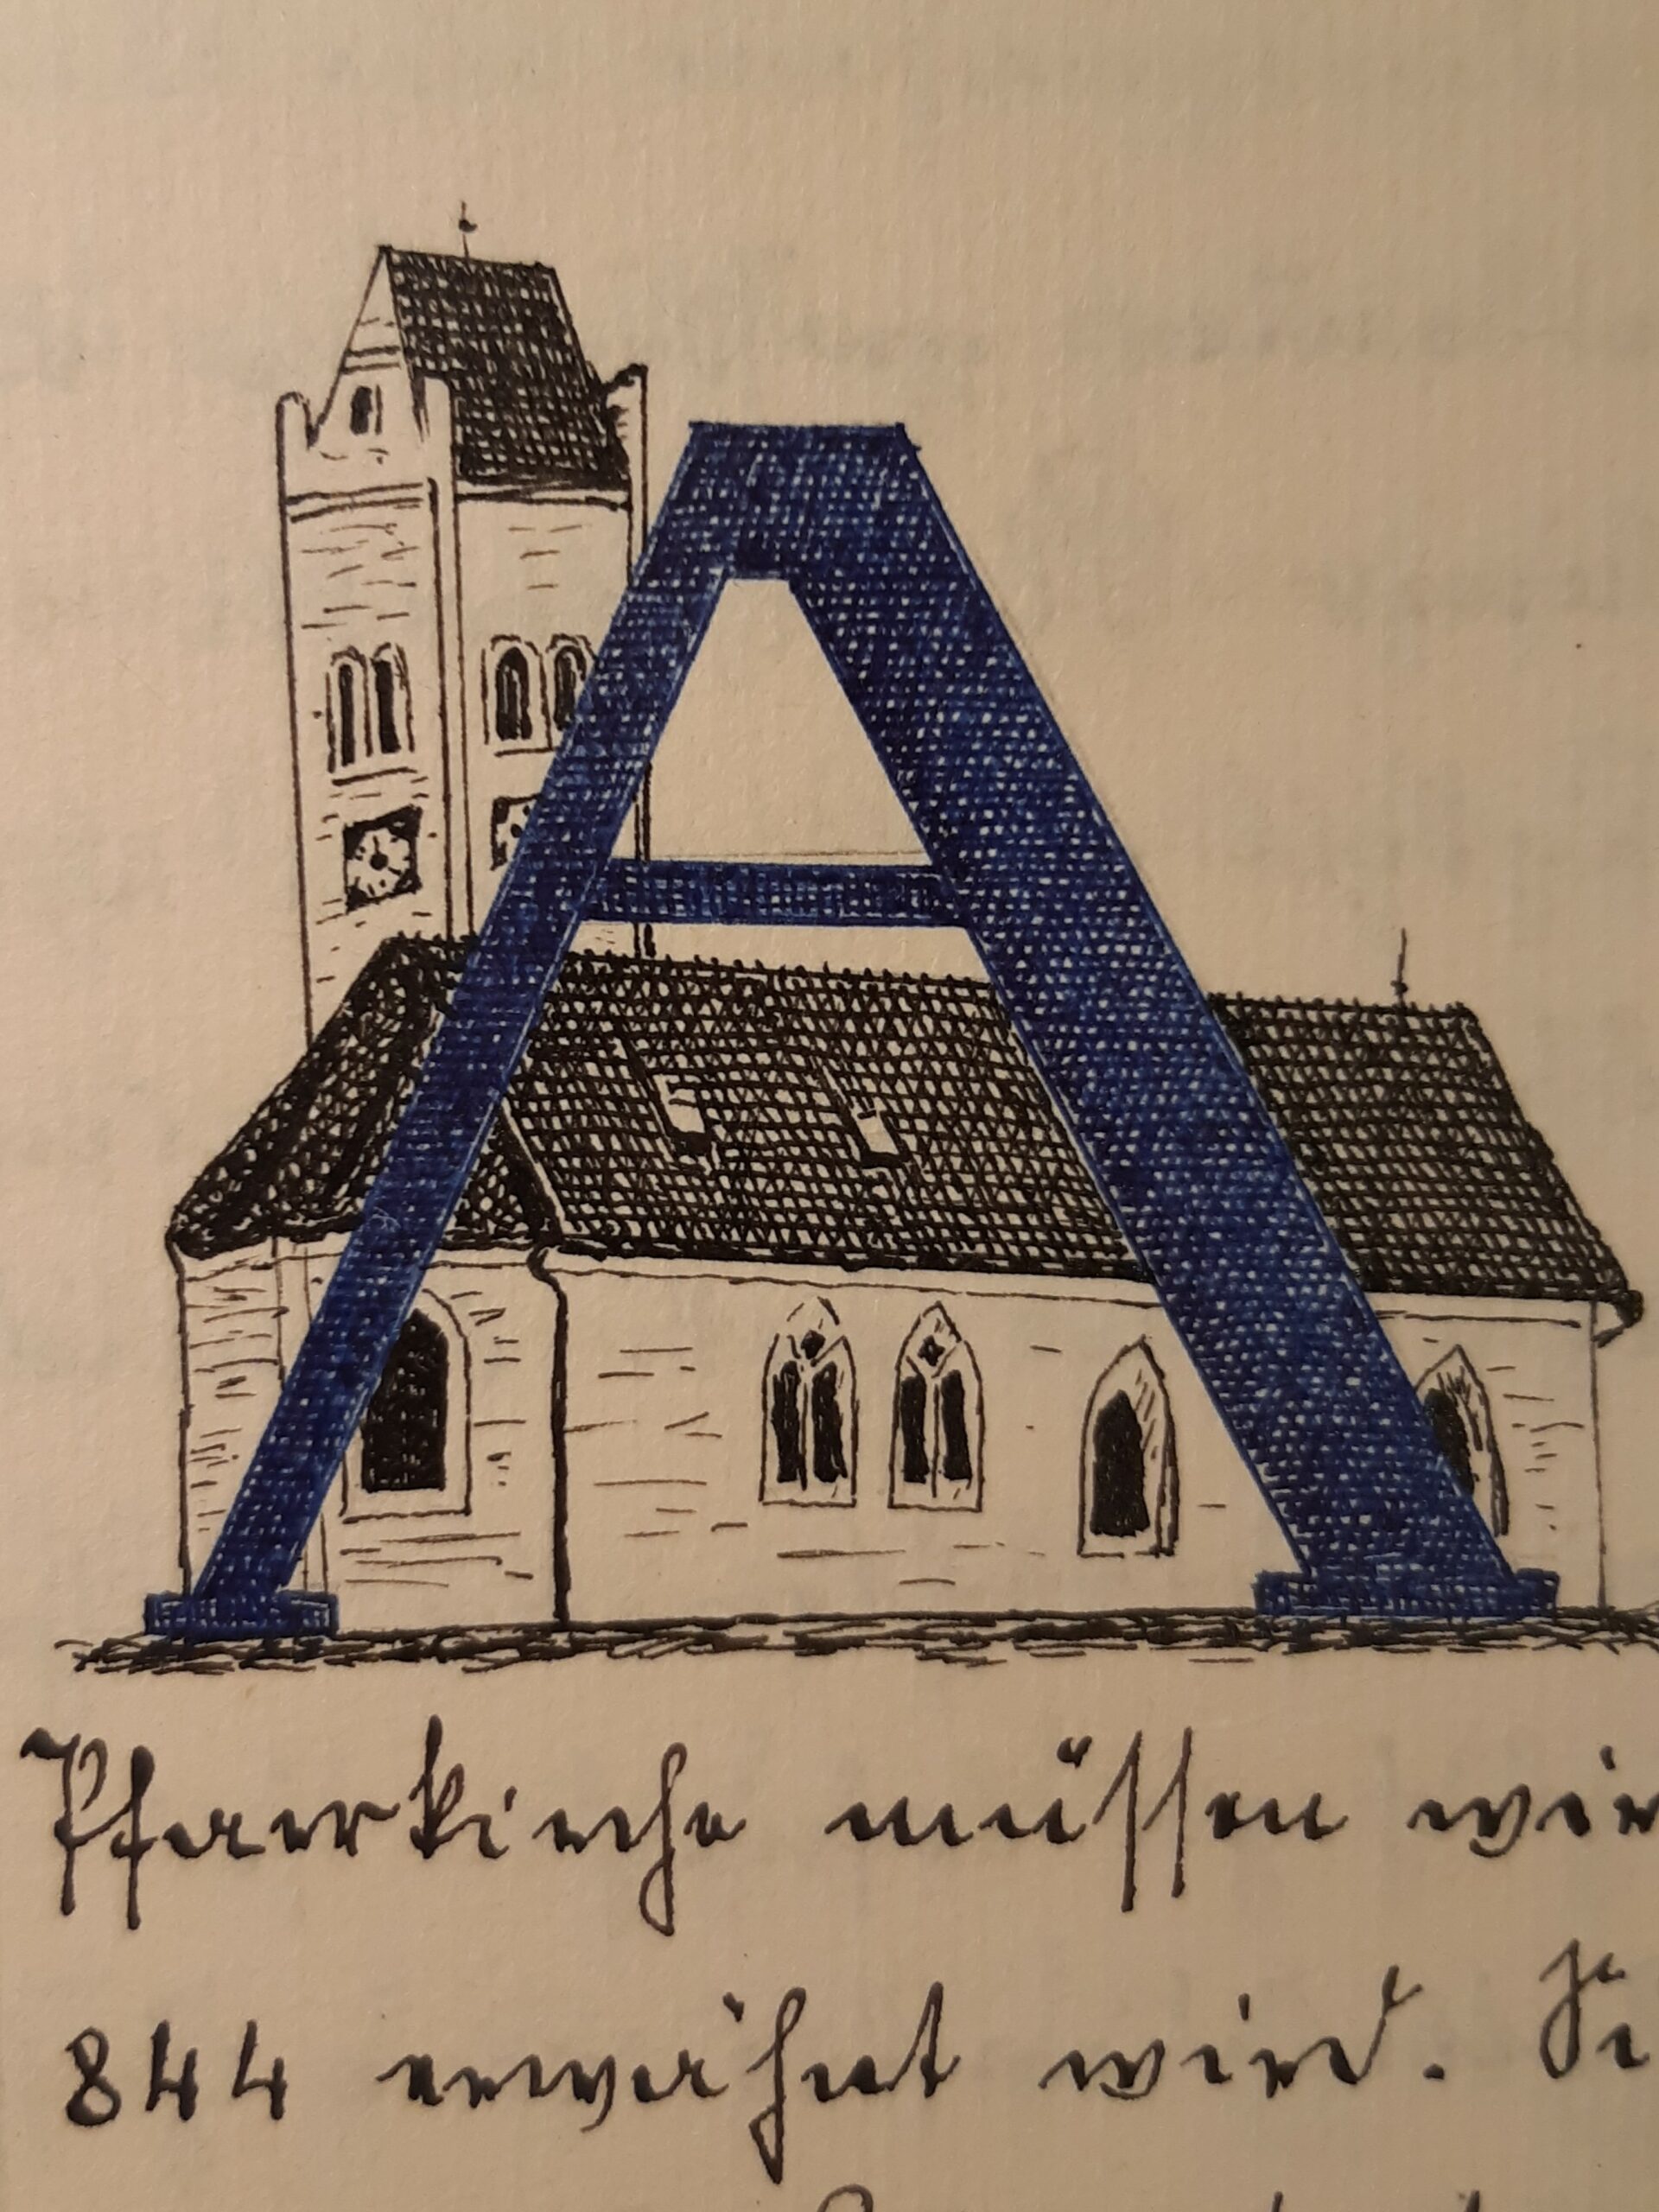 A
Pfarrkirche müssen wir
844 erwähnt wird.